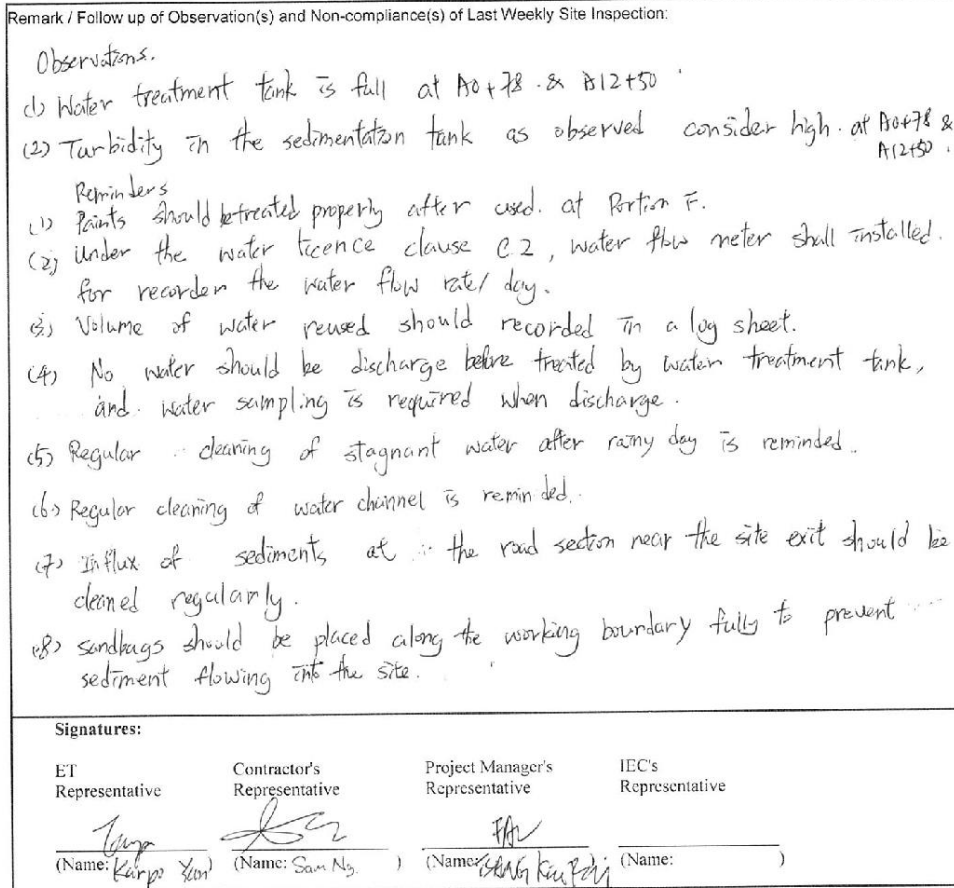 Remark / Follow up of Observation(s) and Non-compliance(s) of Last Weekly Site Inspection:
Observations.
(1) Water treatment tank is full at A0+78 & A12+50
(2) Turbidity in the sedimentation tank as observed consider high. at A0+78 &
A12+50.
Reminders
(1) Paints should be treated properly after used. at Portion F.
(2) Under the water licence clause C.2, water flow meter shall installed.
for recorder the water flow rate/ day.
(3) Volume of water reused should recorded in a log sheet.
(4) No water should be discharge before treated by water treatment tank,
and water sampling is required when discharge.
(5) Regular cleaning of stagnant water after rainy day is reminded.
(6) Regular cleaning of water channel is reminded.
(7) Influx of sediments at the road section near the site exit should be
cleaned regularly.
(8) Sandbags should be placed along the working boundary fully to prevent
sediment flowing into the site.
Signatures:
ET Contractor's Project Manager's IEC's
Representative Representative Representative Representative
(Name: Karpo Yun) (Name: Sam Ng. ) (Name: (Name: )